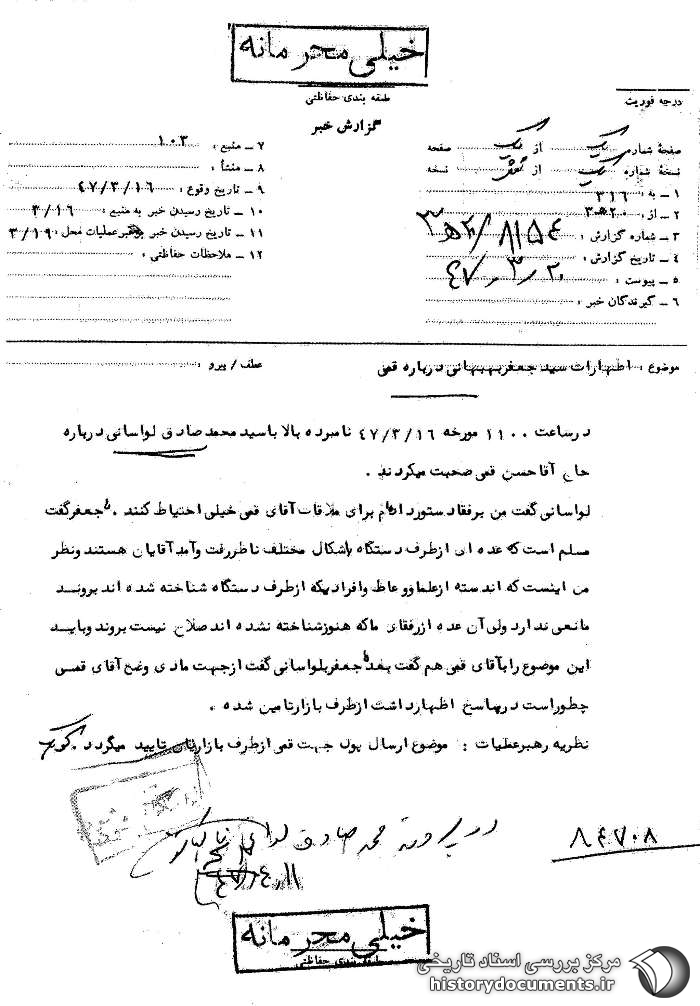 خیلی محرمانه
طبقه بندی حفاظتی
درجه فوریت
گزارش خبر
صفحهٔ شماره یک از یک صفحه
نسخهٔ شماره یک از نسخه
۱ – به : ۳۱۶
۲ – از : ۲۰ه۳
۳ – شماره گزارش :
۴ – تاریخ گزارش : ۴۷٫۳٫۲۰
۵ – پیوست :
۶ – گیرندگان خبر :
۷ – منبع : ۱۰۳
۸ – منشأ :
۹ – تاریخ وقوع : ۴۷/۳/۱۶
۱۰ – تاریخ رسیدن خبر به منبع : ۳/۱۶
۱۱ – تاریخ رسیدن خبر به رهبر عملیات محل : ۳/۱۹
۱۲ – ملاحظات حفاظتی :
موضوع : اظهارات سید جعفر بهبهانی درباره قمی
عطف / پیرو :
در ساعت ۱۱۰۰ مورخه ۴۷/۳/۱۶ نامبرده بالا با سید محمد صادق لواسانی درباره
حاج آقا حسن قمی صحبت میکردند .
لواسانی گفت من برفقا دستور داده‌ام برای ملاقات آقای قمی خیلی احتیاط کنند . جعفر گفت
مسلم است که عده ای از طرف دستگاه باشکال مختلف ناظر رفت وآمد آقایان هستند ونظر
من اینست که اند سته از علما و وعاظ وافرادیکه از طرف دستگاه شناخته شده اند بروند
مانعی ندارد ولی آن عده از رفقای ما که هنوز شناخته نشده اند صلاح نیست بروند وبایید
این موضوع را بآقای قمی هم گفت بعد جعفر بلواسانی گفت از جهت مادی وضع آقای قمی
چطور است در پاسخ اظهار داشت از طرف بازار تامین شده .
نظریه رهبر عملیات : موضوع ارسال پول جهت قمی از طرف بازاریان تایید میگردد .
در پرونده محمد صادق لواسانی
۴۷٫۴٫۱۱
۸۴۷۰۸
خیلی محرمانه
طبقه بندی حفاظتی
مرکز بررسی اسناد تاریخی
historydocuments.ir